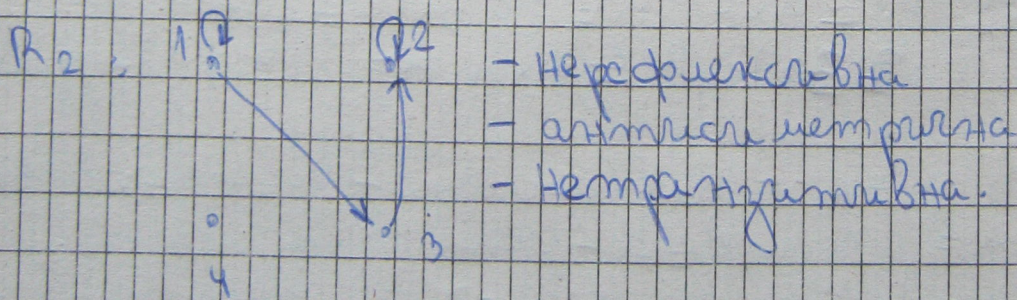 R2: 1 2 - нерефлексивна
- антисиметрична
- нетранзитивна.
3
4